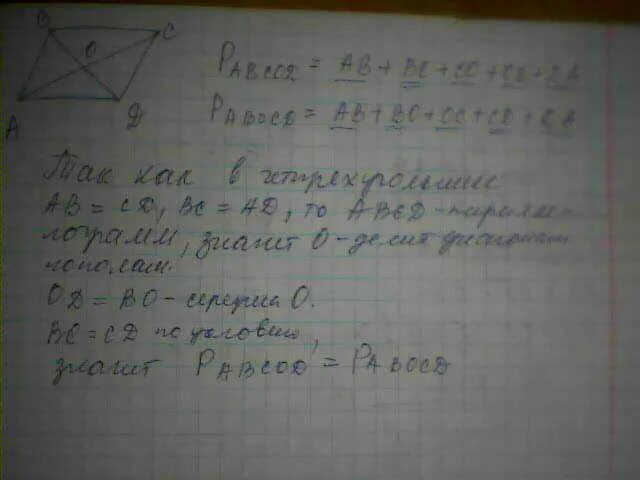 B
C
O
A
D
P ABCOD = AB + BC + CO + OD + DA
P ABOCD = AB + BO + OC + CD + DA
Так как в четырехугольнике
AB = CD, BC = AD, то ABCD - паралле-
лограмм, значит O - делит диагонали
пополам.
OD = BO - середина O.
BC = CD по условию,
значит P ABCOD = P ABOCD